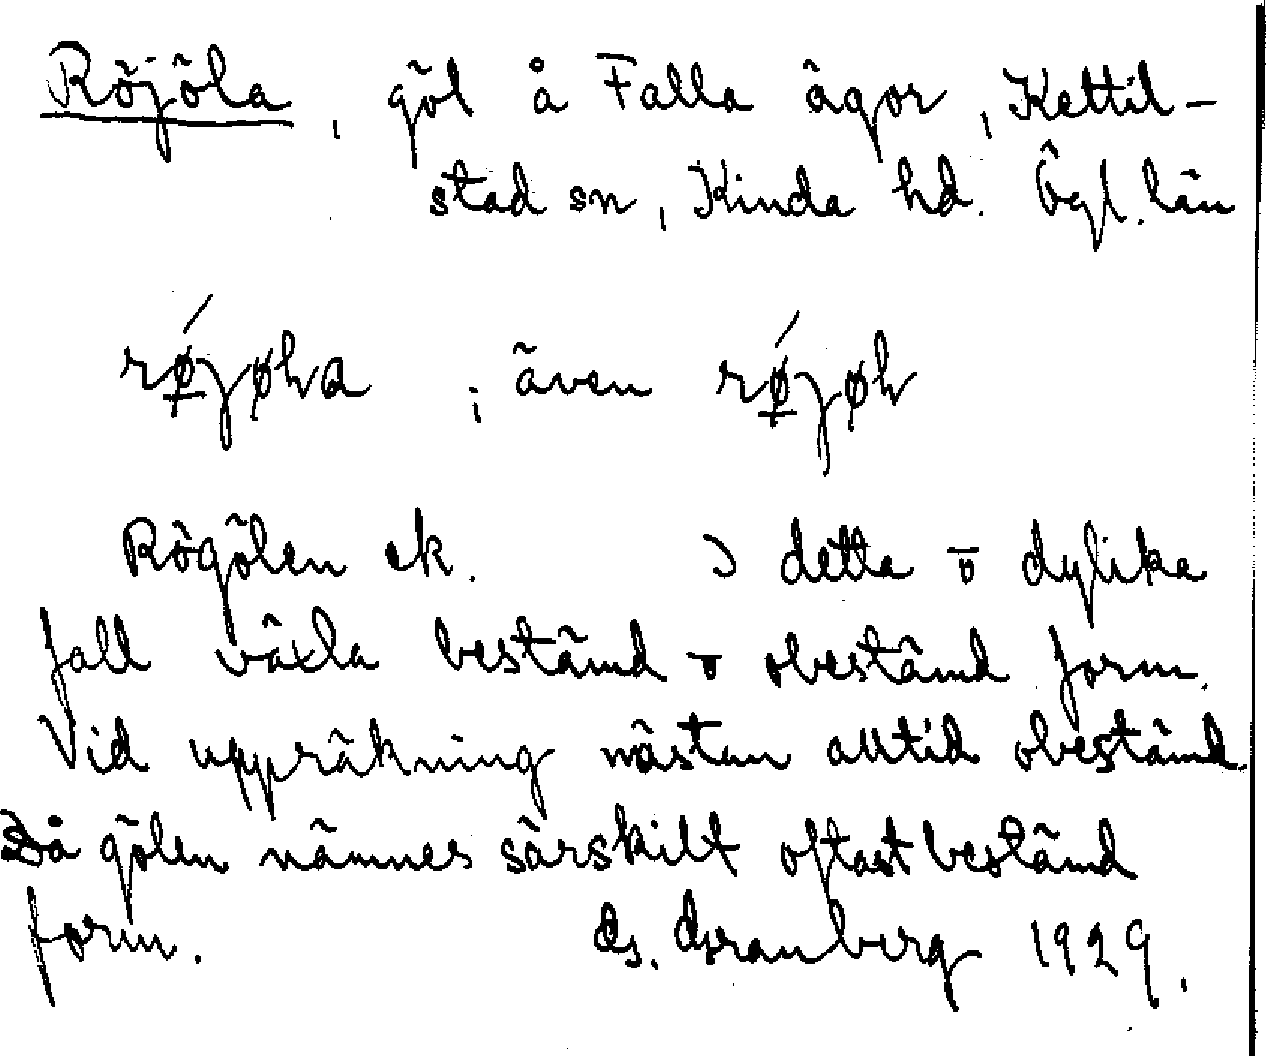 Röjöla, göl å Falla ägor, Kettil-
stad sn, Kinda hd. Ögl. län
røjøla ; även røjøl
Rögölen ek. I detta o dylika
fall växla bestämd o obestämd form.
Vid uppräkning nästan alltid obestämd.
Då gölen nämnes särskilt oftast bestämd
form. G. Granberg 1929.